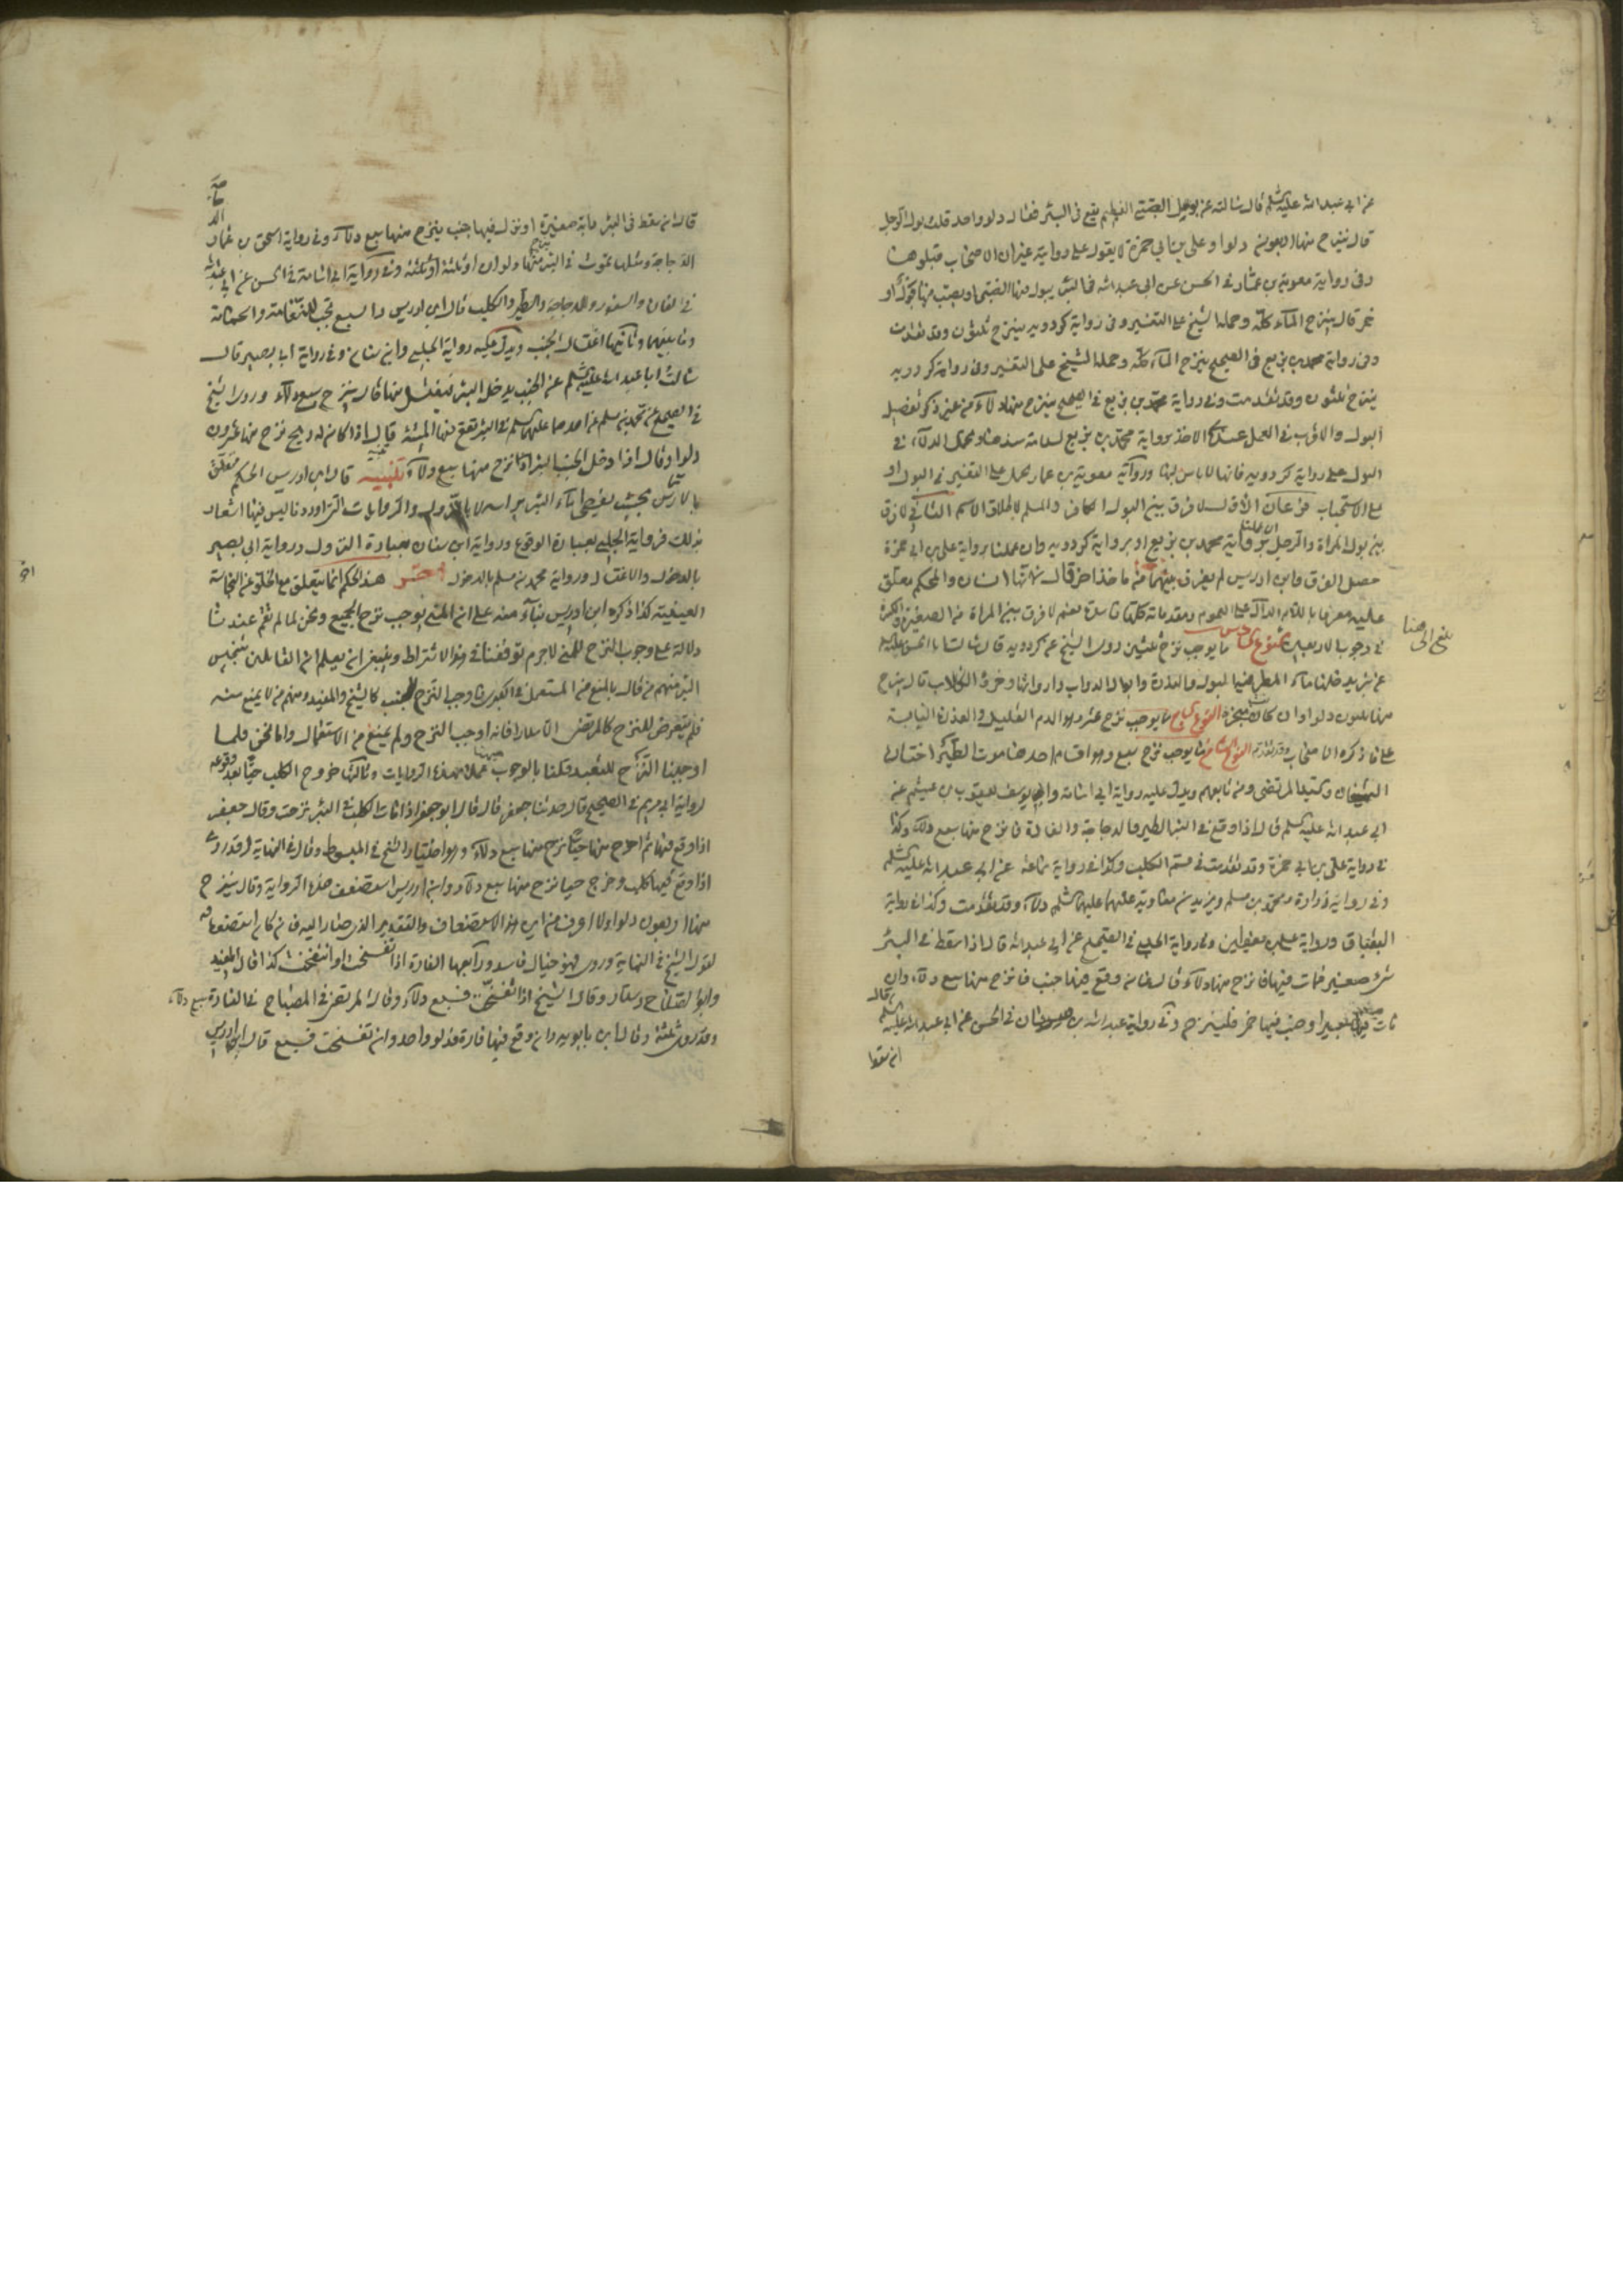 عن ابي عبد الله عليه السلم قال سالته عن بول الصبي الفطيم يقع في البئر فقال دلو واحد قلت بول الرجل
قال ينزح منها اربعون دلوا وعلي بن ابي حمزة لا يعول على روايته غير ان الاصحاب قبلوها
وفي رواية معوية بن عمار في الحسن عن ابي عبد الله في البئر يبول فيها الصبي او يصب فيها بول او
خمر قال ينزح الماء كله وحمله الشيخ على التغير وفي رواية كردويه ينزح ثلثون وقد تقدمت
وفي رواية محمد بن بزيع في الصحيح ينزح الماء كله وحمله الشيخ على التغير وفي رواية كردويه
ينزح ثلثون وقد تقدمت وفي رواية محمد بن بزيع في الصحيح ينزح منها دلاء من غير ذكر تفصيل
البول والاقرب في العمل عندي الاخذ برواية محمد بن بزيع لسلامة سندها ويحمل الدلاء في
البول على رواية كردويه فانها لا باس بها ورواية معوية بن عمار يحمل على التغير في البول او
على الاستحباب فرعان الاول لا فرق بين البول الكافر والمسلم لاطلاق الاسم الثاني لا فرق
بين بول المراة والرجل ان عملنا برواية محمد بن بزيع او برواية كردويه وان عملنا برواية علي بن ابي حمزة
حصل الفرق وابن ادريس لم يفرق بينهما ماخذا من قال لانها انسان والحكم معلق
عليه معرفا باللام الدال على العموم ومقدماته كلها فاسدة نعم لا فرق بين المراة الصغيرة والكبيرة
في وجوب الاربعين النوع السادس ما يوجب نزح ثلثين روى الشيخ عن كردويه قال سالت ابا الحسن عليه السلم
عن بئر يدخلها ماء المطر فيه البول والعذرة وابوال الدواب واروائها وخرؤ الكلاب قال ينزح
منها ثلثون دلوا وان كانت مبخرة النوع السابع ما يوجب نزح عشر وهو الدم القليل والعذرة اليابسة
على ما ذكره الاصحاب وقد تقدم النوع الثامن ما يوجب نزح سبع وهو اقسام احدها موت الطير اختاره
الشيخان وكتبه المرتضى ومن تابعهم ويدل عليه رواية ابي اسامة وابي يوسف يعقوب بن عيثم عن
ابي عبد الله عليه السلم قال اذا وقع في البئر الطير والدجاجة والفارة فانزح منها سبع دلاء وكذا
في رواية علي بن ابي حمزة وقد تقدمت في قسم الكلب وكذا في رواية سماعة عن ابي عبد الله عليه السلم
وفي رواية زرارة ومحمد بن مسلم وبريد بن معاوية عنهما عليهما السلم دلاء وقد تقدمت وكذا في رواية
البقباق ورواية علي بن يقطين وفي رواية الحلبي في الصحيح عن ابي عبد الله قال اذا سقط في البئر
شيء صغير فمات فيها فانزح منها دلاء قال فان وقع فيها جنب فانزح منها سبع دلاء وان
مات فيها بعير او صب فيها خمر فلينزح وفي رواية عبد الله بن سنان في الحسن عن ابي عبد الله عليه السلم قال
ان سقط
بلغ الى هنا
قال ان سقط في البئر دابة صغيرة او نزل فيها جنب ينزح منها سبع دلاء وفي رواية اسحق بن عمار
الدجاجة ومثلها تموت في البئر ينزح منها دلوان او ثلثة وفي رواية ابي اسامة في الحسن عن ابي عبد الله
في الفارة والسنور والدجاجة والطير والكلب قال ابن ادريس والسبع تجب للنعامة والحمامة
وما بينهما وثانيها اغتسال الجنب ويدل عليه رواية الحلبي وابن سنان وفي رواية ابي بصير قال
سالت ابا عبد الله عليه السلم عن الجنب يدخل البئر فيغتسل منها قال ينزح سبع دلاء وروى الشيخ
في الصحيح عن محمد بن مسلم عن احدهما عليهما السلم في البئر تقع فيها الميتة قال اذا كان له ريح نزح منها عشرون
دلوا وقال اذا دخل الجنب البئر نزح منها سبع دلاء تنبيه قال ابن ادريس الحكم متعلق
بالارتماس بحيث يغطي ماء البئر راسه لا بالنزول والروايات التي اوردناها ليس فيها اشعار
بذلك فرواية الحلبي بعبارة الوقوع ورواية ابن سنان بعبارة النزول ورواية ابي بصير
بالدخول والاغتسال ورواية محمد بن مسلم بالدخول هذا الحكم انما يتعلق مع الخلو عن النجاسة
العينية كذا ذكره ابن ادريس بناء منه على ان المني يوجب نزح الجميع ونحن لما لم يقم عندنا
دلالة على وجوب النزح للمني لا جرم توقفنا في هذا الاشتراط وينبغي ان يعلم ان القائلين بتنجيس
البئر منهم من قال بالمنع من المستعمل في الكبرى فاوجب النزح للجنب كالشيخ والمفيد ومنهم من لا يمنع منه
فلم يتعرض للنزح كالمرتضى الا سلار فانه اوجب النزح ولم يمنع من الاستعمال واما نحن فلما
اوجبنا النزح للتعبد قلنا بالوجوب هيهنا عملا بهذه الروايات وثالثها خروج الكلب حيا بعد وقوعه
لرواية ابي مريم في الصحيح قال حدثنا جعفر قال قال ابو جعفر اذا مات الكلب في البئر نزحت وقال جعفر
اذا وقع فيها ثم اخرج منها حيا نزح منها سبع دلاء وهو اختيار الشيخ في المبسوط وقال في النهاية وقد روي
اذا وقع فيها كلب وخرج حيا نزح منها سبع دلاء وابن ادريس استضعف هذه الرواية وقال ينزح
منها اربعون دلوا ولا اعرف من اين هذا الاستضعاف والتقدير الذي صار اليه فان كان استضعافه
لقول الشيخ في النهاية وروي فهو خيال فاسد ورابعها الفارة اذا تفسخت او انتفخت كذا قال المفيد
وابو الصلاح وسلار وقال الشيخ اذا تفسخت فسبع دلاء وقال المرتضى في المصباح في الفارة سبع دلاء
وقد روي ثلثة وقال ابن بابويه وان وقع فيها فارة فدلو واحد وان تفسخت فسبع قال ابن ادريس